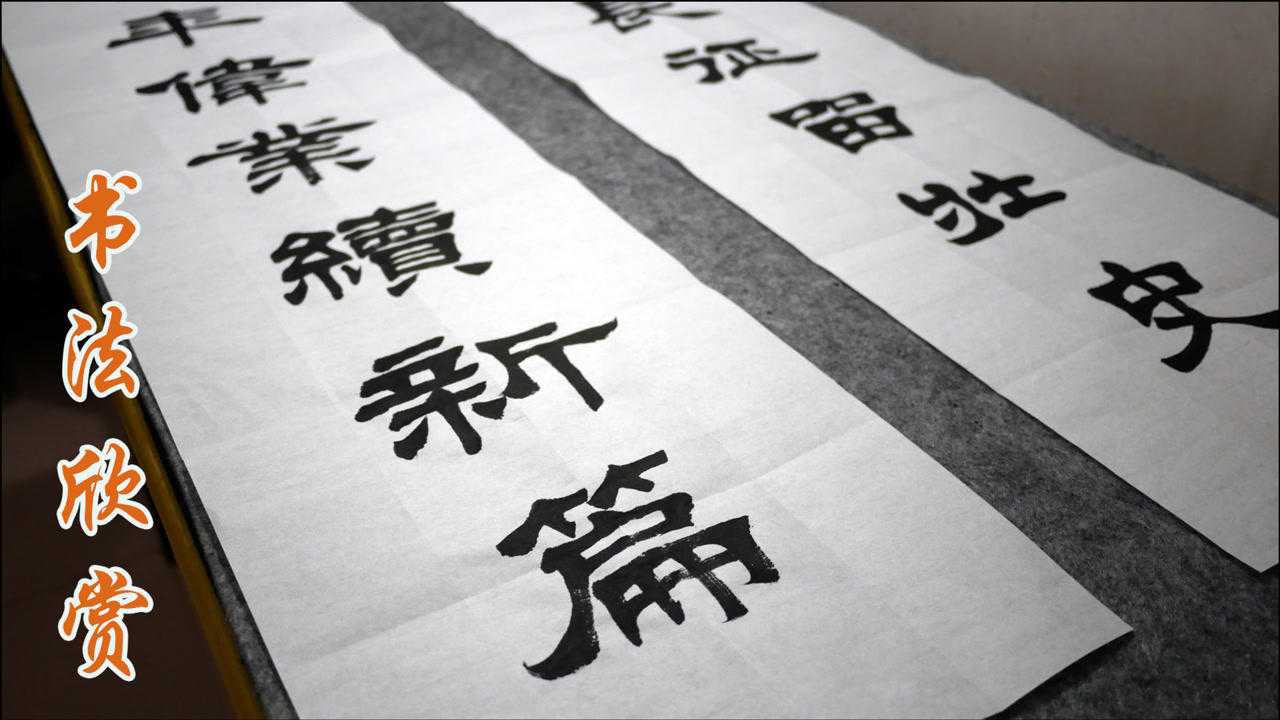 长征留壮史
年偉業續新篇
书法欣赏